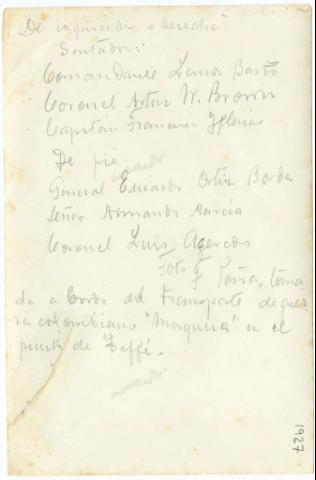 De izquierda a derecha
Sentados:
Comandante Lemos Basto
Coronel Artur W. Brown
Capitán Francisco Iglesias
De pie:
General Eduardo Ortiz Borda
Señor Armando Mancía
Coronel Luis Acevedo
Foto F Peña, toma
da a bordo del transporte de gue
ra colombiano "Mosquera" en el
puerto de Teffé.
1927